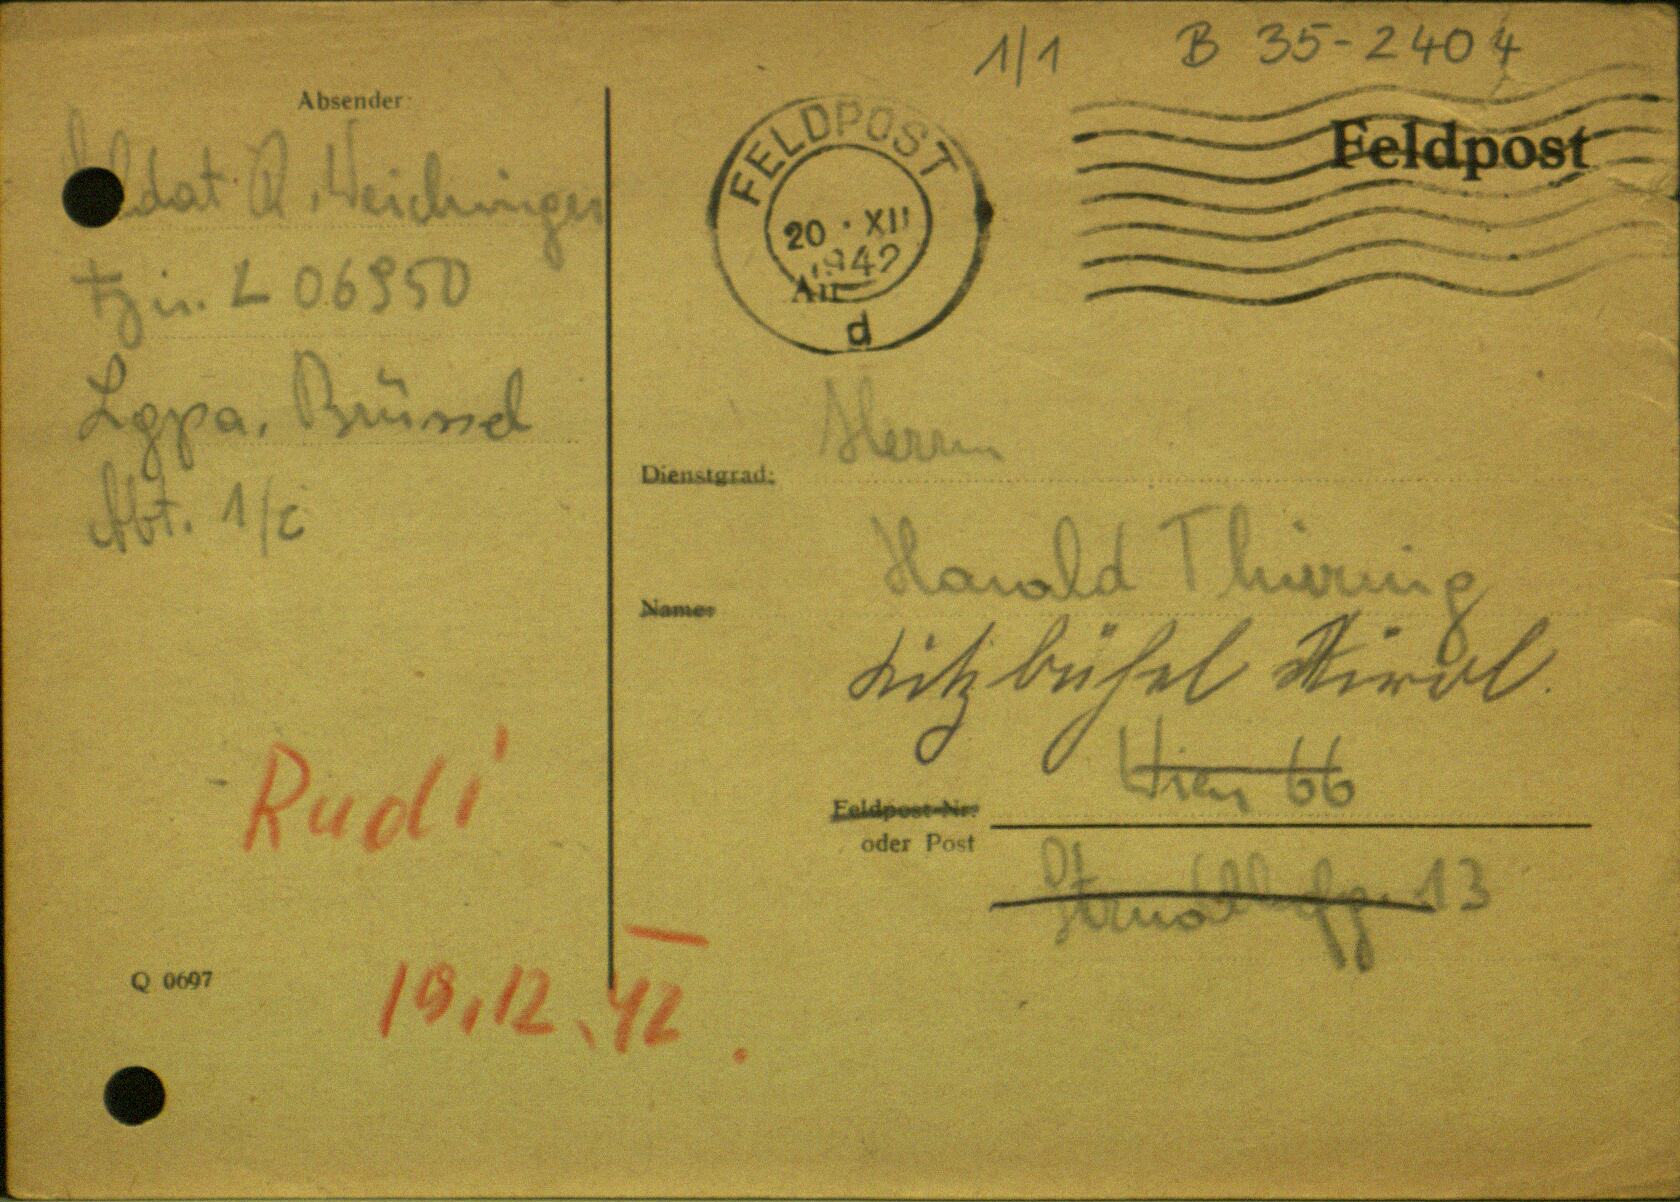 1/1 B 35-2404
Feldpost
FELDPOST
20 · XII
1942
d
An
Absender:
Soldat R. Weichinger
L 06950
Lgpa. Brüssel
Abt. 1/c
Dienstgrad: Herrn
Name: Harald Thüring
Kitzbühel Tirol.
Feldpost-Nr. Wien 66
oder Post
Strudlhofg. 13
Rudi
19.12.42.
Q 0697